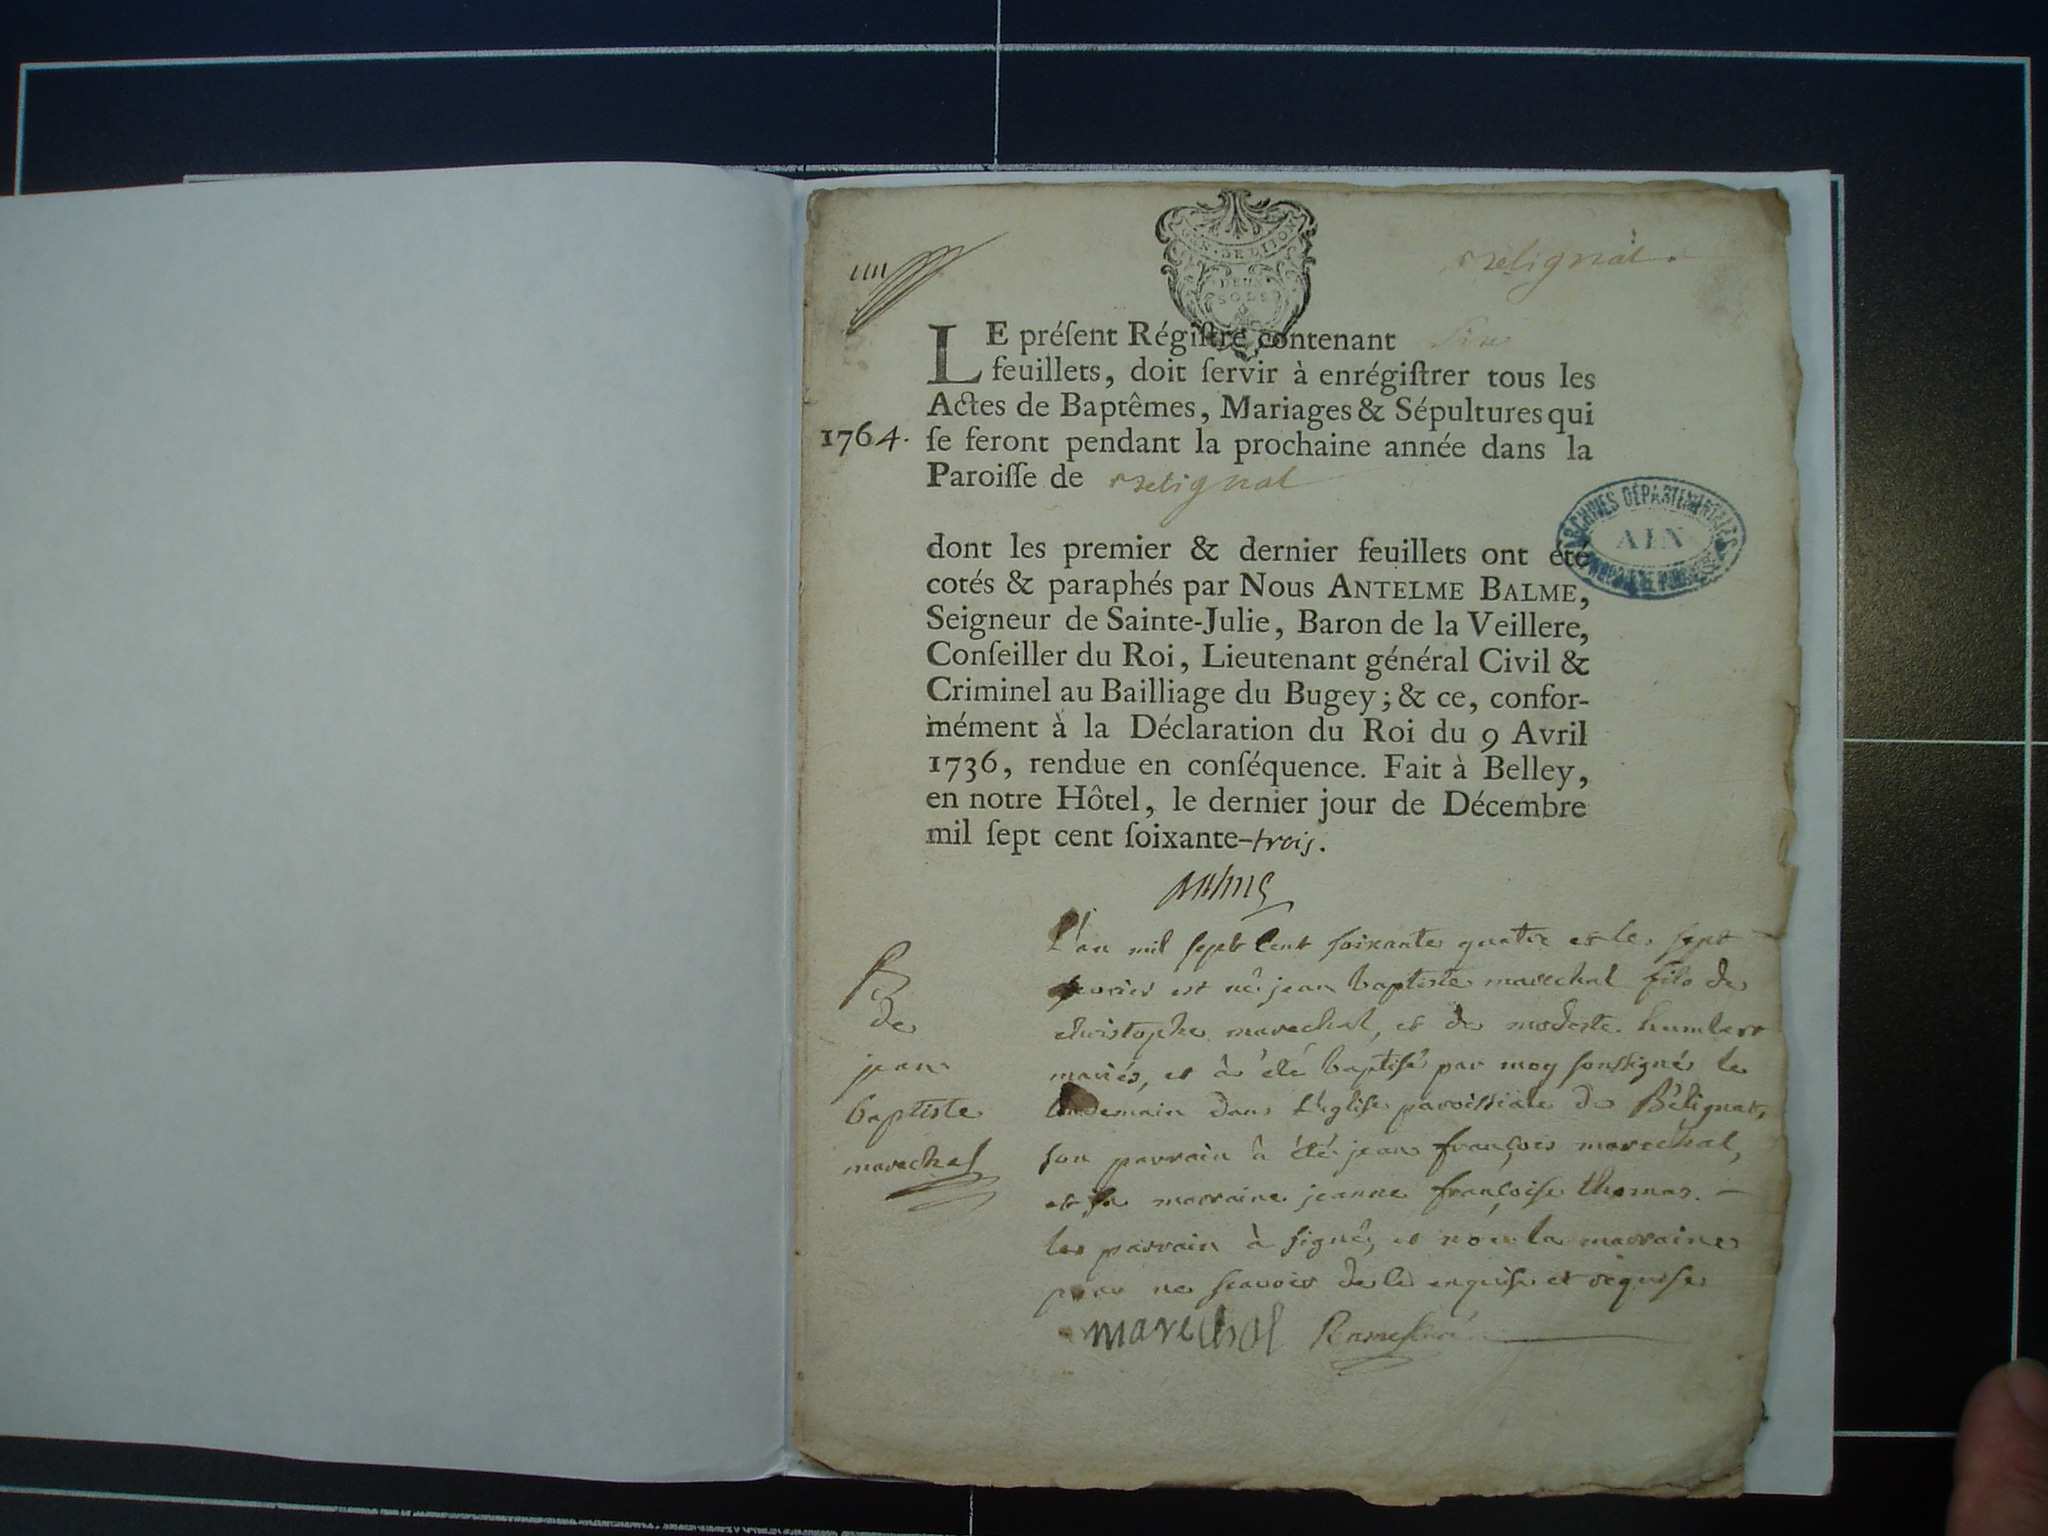 GEN. DE DIJON
DEUX
SOLS
Belignat.
LE préſent Régiſtre contenant Six
feuillets, doit ſervir à enrégiſtrer tous les
Actes de Baptêmes, Mariages & Sépultures qui
1764. ſe feront pendant la prochaine année dans la
Paroiſſe de Belignat
dont les premier & dernier feuillets ont été
cotés & paraphés par Nous ANTELME BALME,
Seigneur de Sainte-Julie, Baron de la Veillere,
Conſeiller du Roi, Lieutenant général Civil &
Criminel au Bailliage du Bugey ; & ce, confor-
mément à la Déclaration du Roi du 9 Avril
1736, rendue en conſéquence. Fait à Belley,
en notre Hôtel, le dernier jour de Décembre
mil ſept cent ſoixante-trois.
ARCHIVES DÉPARTEMENTALES
AIN
Balme
B
de
jean
baptiste
marechal
L'an mil sept cent soixante quatre et le sept
fevrier est né jean baptiste marechal fils de
christophe marechal, et de modeste humbert
mariés, et à été baptisé par moy soussigné le
lendemain dans l'eglise paroissiale de Bélignat,
son parrain à été jean françois maréchal,
et sa marraine jeanne françoise thomas. –
le parrain à signé, et non la marraine
pour ne scavoir de le enquise et requise
marechal